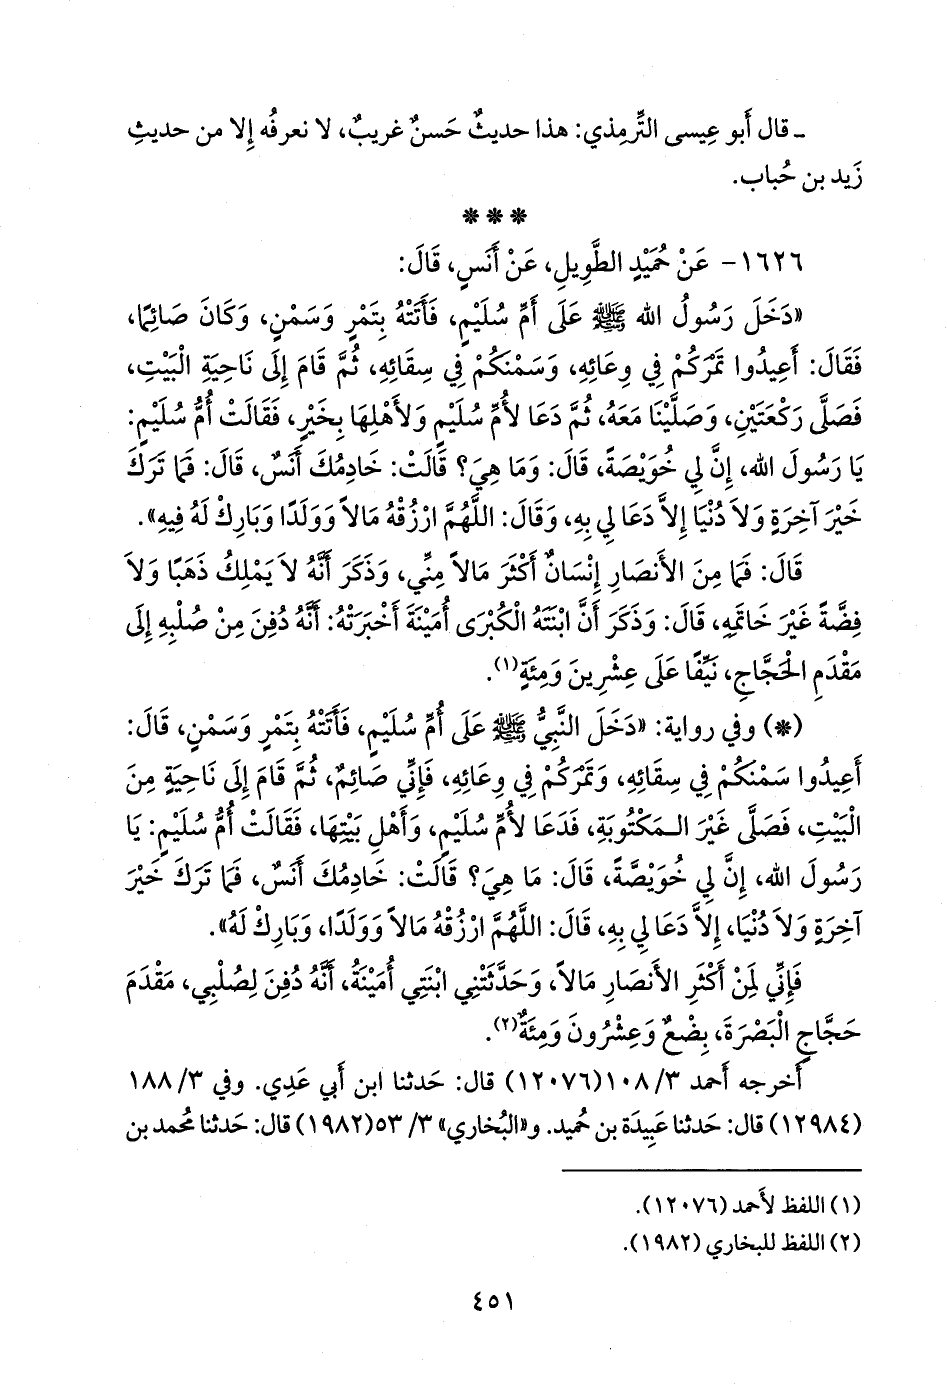 ـ قال أَبو عِيسى التِّرمِذي: هذا حديثٌ حَسنٌ غريبٌ، لا نعرفُه إِلا من حديثِ
زَيد بن حُباب.
* * *
١٦٢٦- عَنْ حُمَيْدٍ الطَّوِيلِ، عَنْ أَنَسٍ، قَالَ:
«دَخَلَ رَسُولُ الله ﷺ عَلَى أُمِّ سُلَيْمٍ، فَأَتَتْهُ بِتَمْرٍ وَسَمْنٍ، وَكَانَ صَائِمًا،
فَقَالَ: أَعِيدُوا تَمْرَكُمْ فِي وِعَائِهِ، وَسَمْنَكُمْ فِي سِقَائِهِ، ثُمَّ قَامَ إِلَى نَاحِيَةِ الْبَيْتِ،
فَصَلَّى رَكْعَتَيْنِ، وَصَلَّيْنَا مَعَهُ، ثُمَّ دَعَا لأُمِّ سُلَيْمٍ وَلأَهْلِهَا بِخَيْرٍ، فَقَالَتْ أُمُّ سُلَيْمٍ:
يَا رَسُولَ الله، إِنَّ لِي خُوَيْصَةً، قَالَ: وَمَا هِيَ؟ قَالَتْ: خَادِمُكَ أَنَسٌ، قَالَ: فَمَا تَرَكَ
خَيْرَ آخِرَةٍ وَلاَ دُنْيَا إِلاَّ دَعَا لِي بِهِ، وَقَالَ: اللَّهُمَّ ارْزُقْهُ مَالاً وَوَلَدًا وَبَارِكْ لَهُ فِيهِ».
قَالَ: فَمَا مِنَ الأَنْصَارِ إِنْسَانٌ أَكْثَرَ مَالاً مِنِّي، وَذَكَرَ أَنَّهُ لاَ يَمْلِكُ ذَهَبًا وَلاَ
فِضَّةً غَيْرَ خَاتَمِهِ، قَالَ: وَذَكَرَ أَنَّ ابْنَتَهُ الْكُبْرَى أُمَيْنَةَ أَخْبَرَتْهُ: أَنَّهُ دُفِنَ مِنْ صُلْبِهِ إِلَى
مَقْدَمِ الْحَجَّاجِ، نَيِّفًا عَلَى عِشْرِينَ وَمِئَةٍ(١).
(*) وفي رواية: «دَخَلَ النَّبِيُّ ﷺ عَلَى أُمِّ سُلَيْمٍ، فَأَتَتْهُ بِتَمْرٍ وَسَمْنٍ، قَالَ:
أَعِيدُوا سَمْنَكُمْ فِي سِقَائِهِ، وَتَمْرَكُمْ فِي وِعَائِهِ، فَإِنِّي صَائِمٌ، ثُمَّ قَامَ إِلَى نَاحِيَةٍ مِنَ
الْبَيْتِ، فَصَلَّى غَيْرَ الـمَكْتُوبَةِ، فَدَعَا لأُمِّ سُلَيْمٍ، وَأَهْلِ بَيْتِهَا، فَقَالَتْ أُمُّ سُلَيْمٍ: يَا
رَسُولَ الله، إِنَّ لِي خُوَيْصَّةً، قَالَ: مَا هِيَ؟ قَالَتْ: خَادِمُكَ أَنَسٌ، فَمَا تَرَكَ خَيْرَ
آخِرَةٍ وَلاَ دُنْيَا، إِلاَّ دَعَا لِي بِهِ، قَالَ: اللَّهُمَّ ارْزُقْهُ مَالاً وَوَلَدًا، وَبَارِكْ لَهُ».
فَإِنِّي لَمِنْ أَكْثَرِ الأَنصَارِ مَالاً، وَحَدَّثَتْنِي ابْنَتِي أُمَيْنَةُ، أَنَّهُ دُفِنَ لِصُلْبِي، مَقْدَمَ
حَجَّاجٍ الْبَصْرَةَ، بِضْعٌ وَعِشْرُونَ وَمِئَةٌ(٢).
أَخرجه أَحمد ٣/ ١٠٨(١٢٠٧٦) قال: حَدثنا ابن أَبي عَدِي. وفي ٣/ ١٨٨
(١٢٩٨٤) قال: حَدثنا عَبِيدَة بن حُميد. و«البُخاري» ٣/ ٥٣(١٩٨٢) قال: حَدثنا مُحمد بن
(١) اللفظ لأَحمد (١٢٠٧٦).
(٢) اللفظ للبخاري (١٩٨٢).
٤٥١